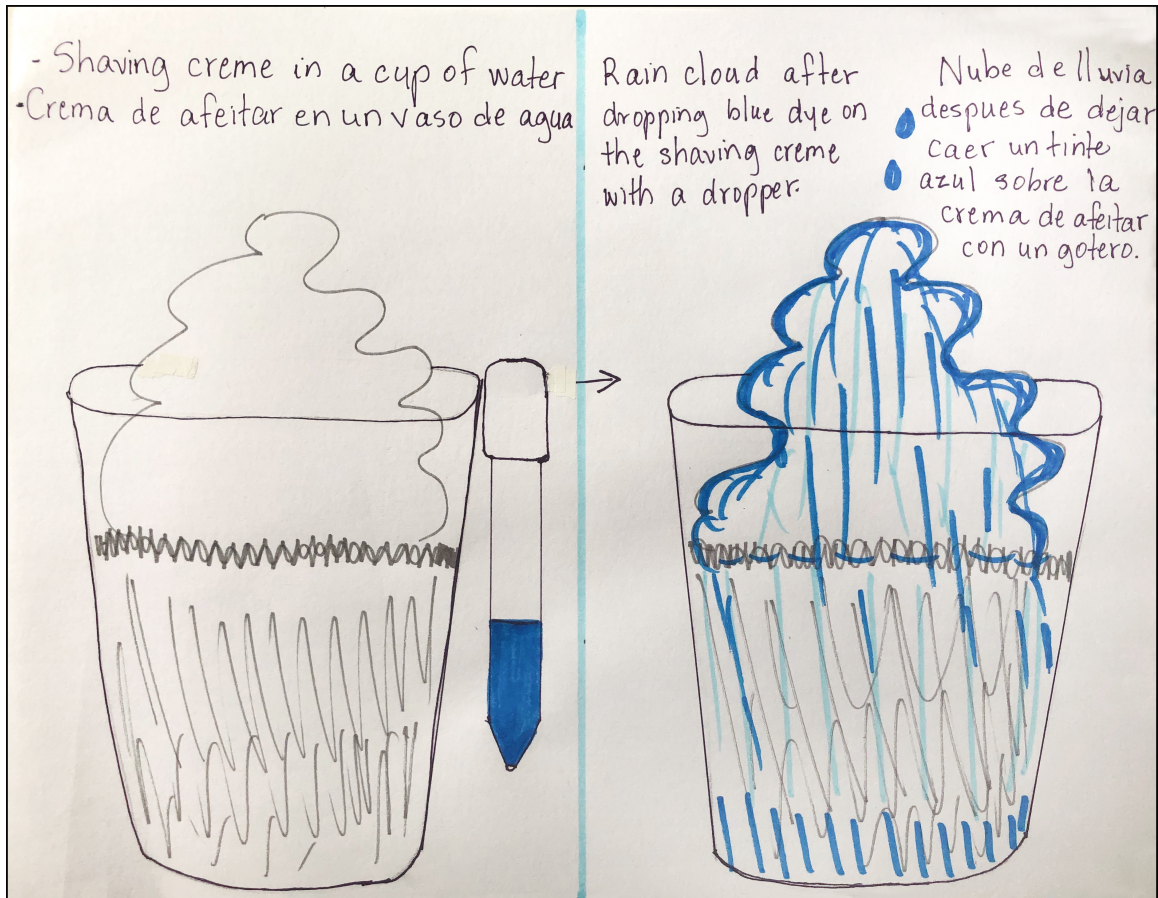 - Shaving creme in a cup of water
-Crema de afeitar en un vaso de agua
Rain cloud after
dropping blue dye on
the shaving creme
with a dropper.
Nube de lluvia
despues de dejar
caer un tinte
azul sobre la
crema de afeitar
con un gotero.